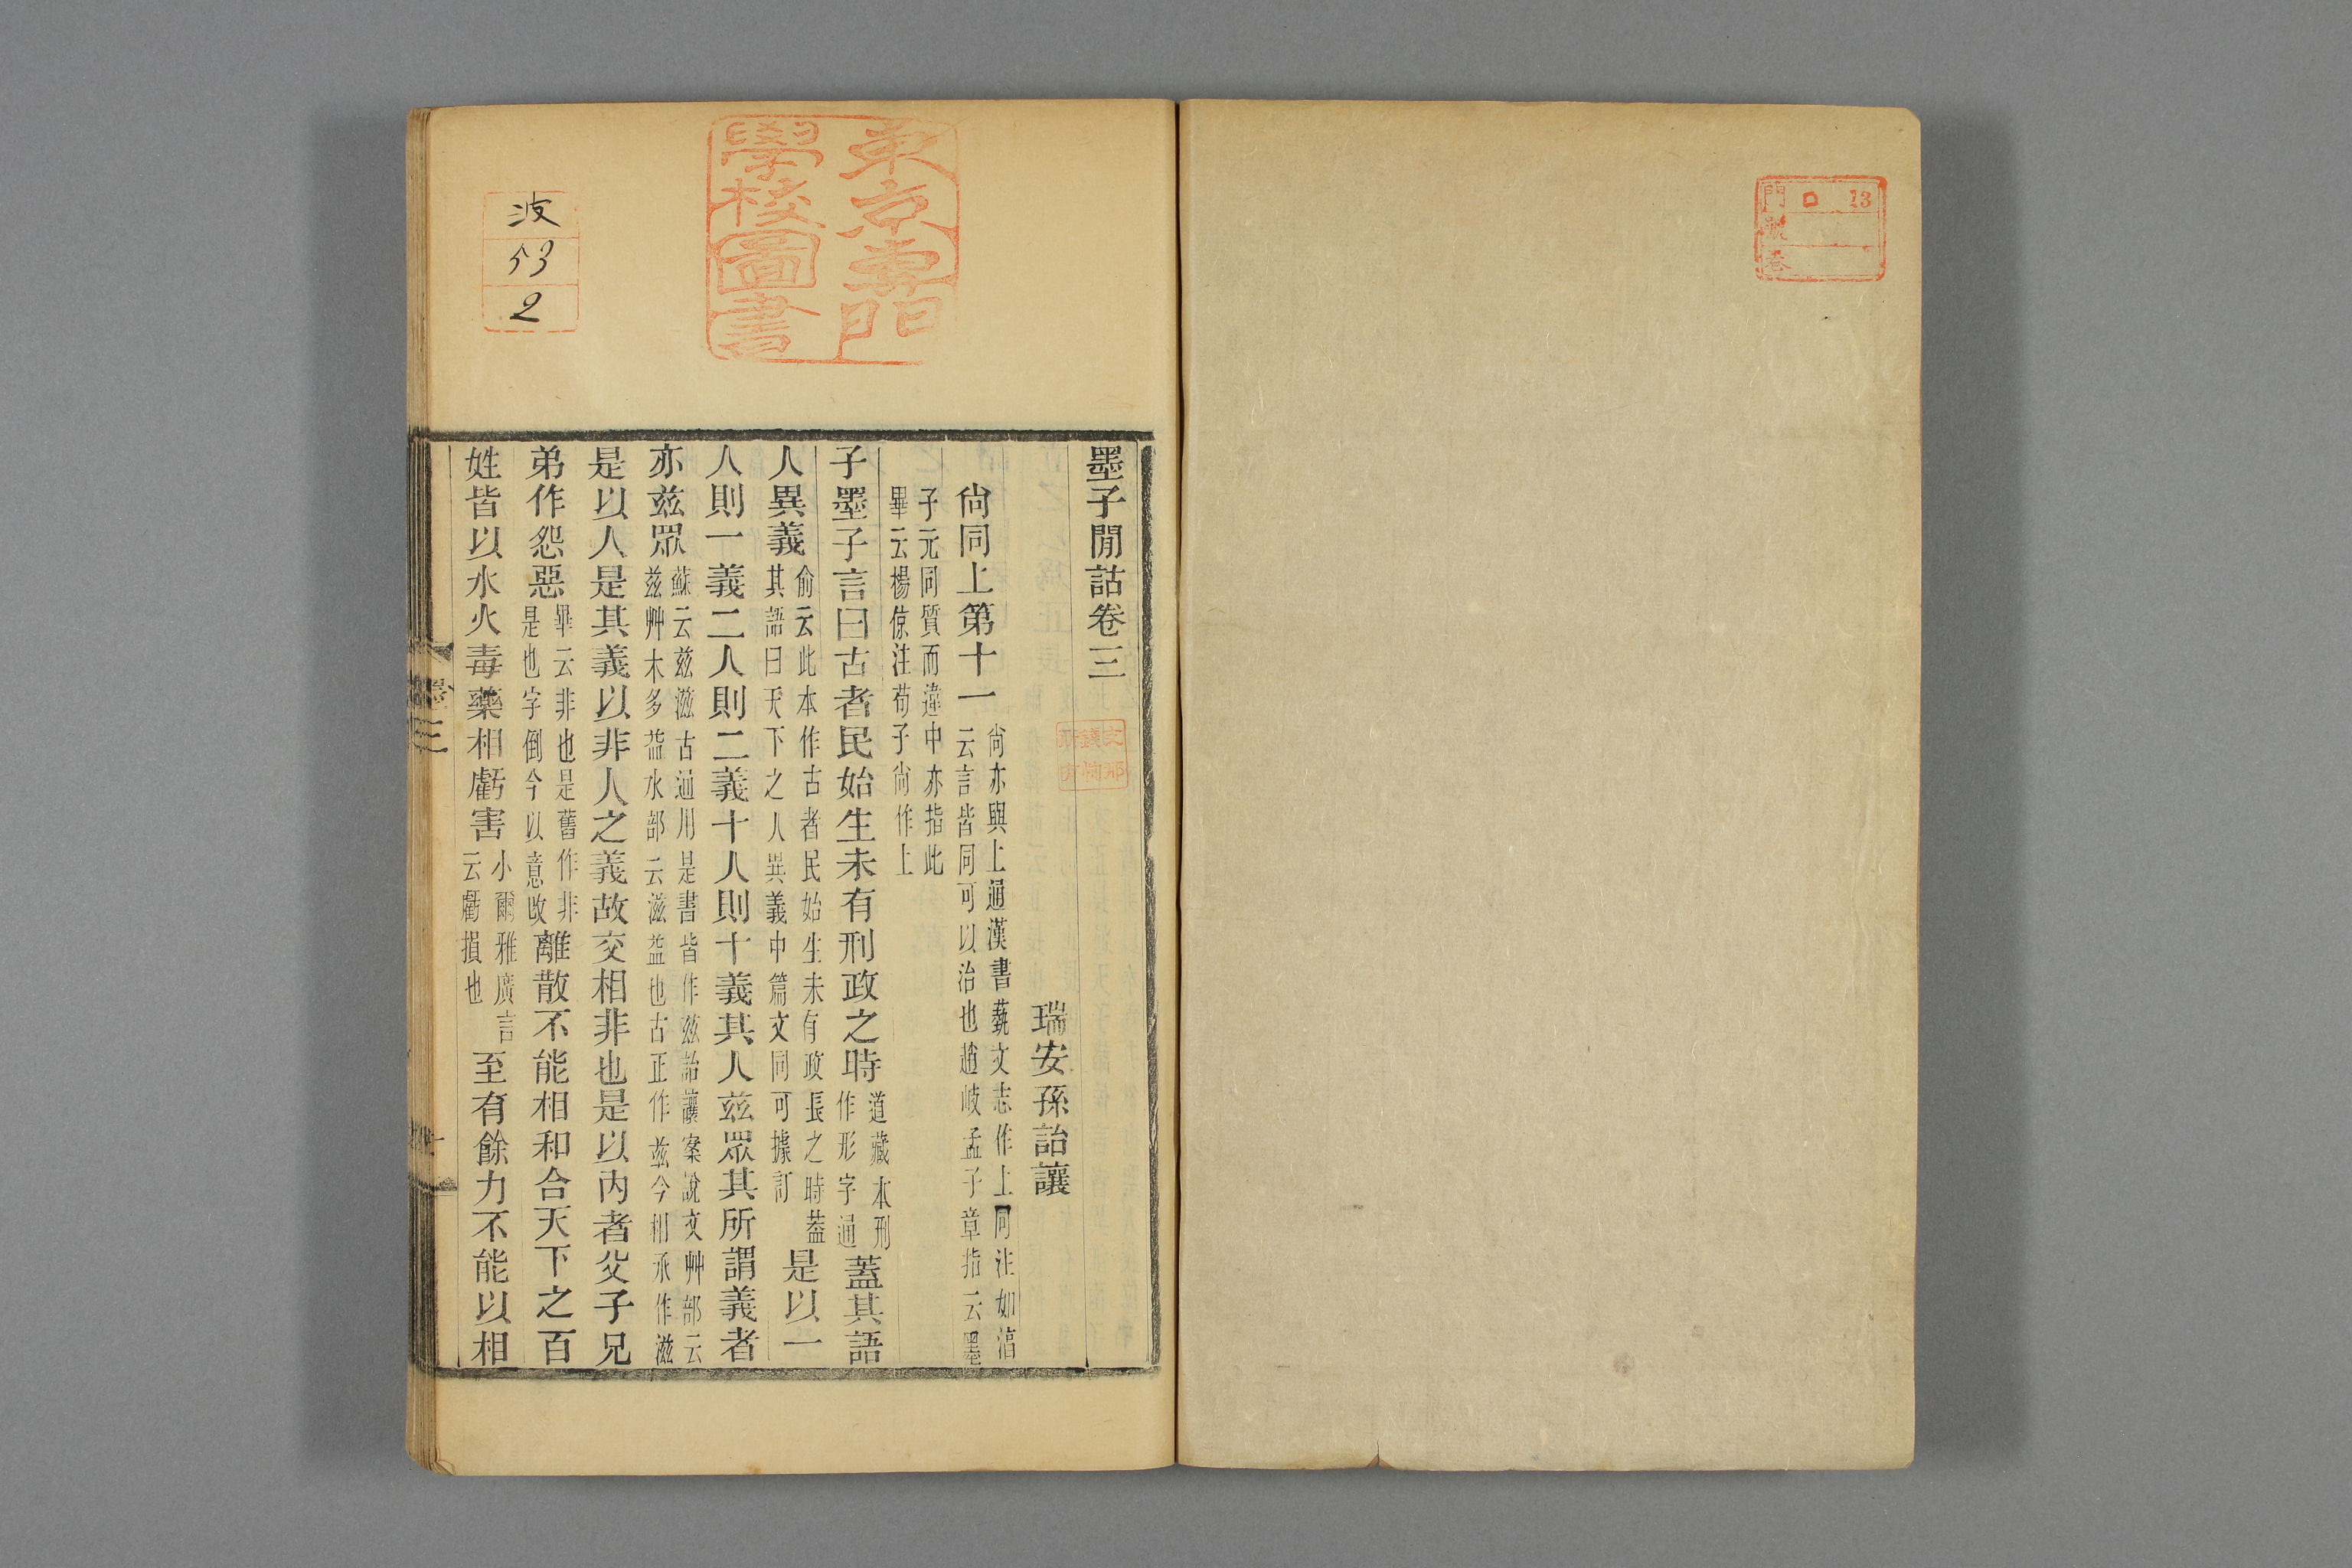 門 ロ 13
號
巻
東京專門
學校圖書
波
53
2
墨子閒詁卷三
瑞安孫詒讓
尙同上第十一尙亦與上通漢書藝文志作上同注如淳
云言皆同可以治也趙岐孟子章指云墨
子元同質而違中亦指此
畢云楊倞注荀子尙作上
子墨子言曰古者民始生未有刑政之時道藏本刑
作形字通蓋其語
人異義俞云此本作古者民始生未有政長之時蓋
其語曰天下之人異義中篇文同可據訂是以一
人則一義二人則二義十人則十義其人茲眾其所謂義者
亦茲眾蘇云茲滋古通用是書皆作茲詒讓案說文艸部云
茲艸木多益水部云滋益也古正作茲今相承作滋
是以人是其義以非人之義故交相非也是以內者父子兄
弟作怨惡畢云非也是舊作非
是也字倒今以意改離散不能相和合天下之百
姓皆以水火毒藥相虧害小爾雅廣言
云虧損也至有餘力不能以相
墨三